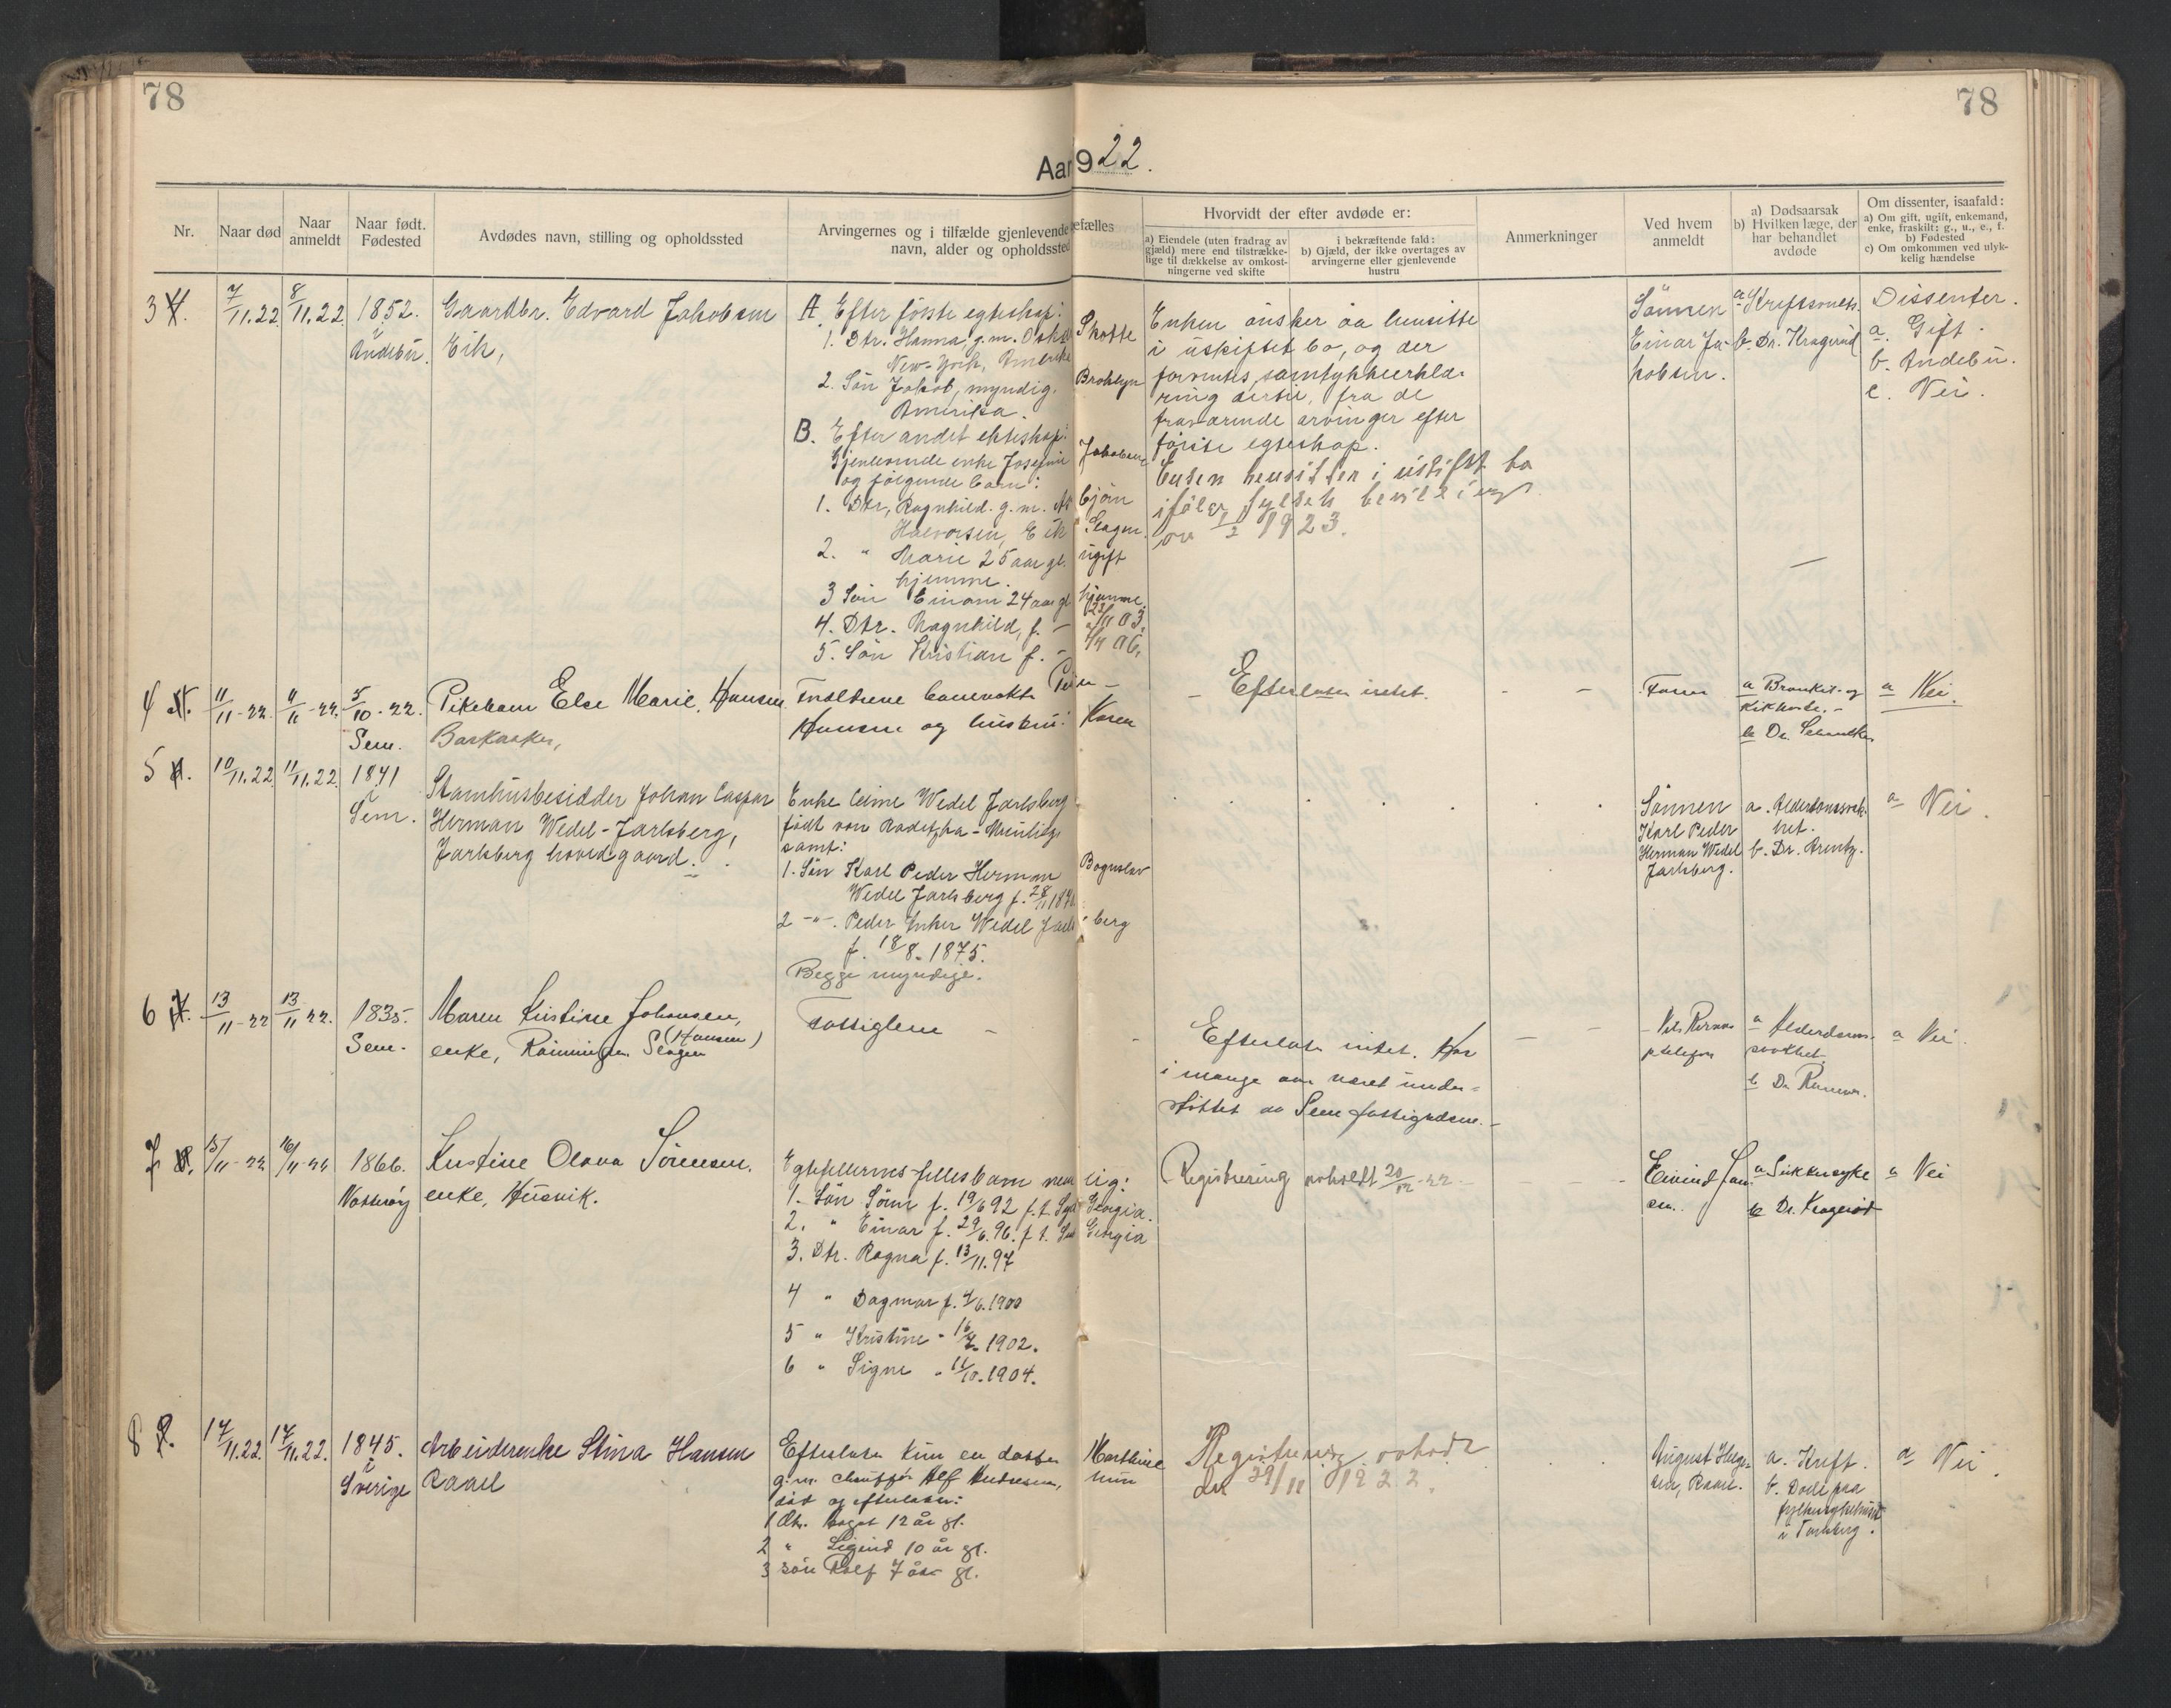 78
78
Aar 922.
Nr.
Naar død
Naar anmeldt
Naar født. Fødested
Avdødes navn, stilling og opholdssted
Arvingernes og i tilfælde gjenlevende
navn, alder og opholdssted
efælles
Hvorvidt der efter avdøde er:
a) Eiendele (uten fradrag av
gjæld) mere end tilstrække-
lige til dækkelse av omkost-
ningerne ved skifte
i bekræftende fald:
b) Gjæld, der ikke overtages av
arvingerne eller gjenlevende
hustru
Anmerkninger
Ved hvem
anmeldt
a) Dødsaarsak
b) Hvilken læge, der
har behandlet
avdøde
Om dissenter, isaafald:
a) Om gift, ugift, enkemand,
enke, fraskilt: g., u., e., f.
b) Fødested
c) Om omkommen ved ulyk-
kelig hændelse
3
7/11.22
8/11.22
1852.
i
Andebu.
Gaardbr. Edvard Jakobsen
Eik,
A. Efter første egteskap:
1. Dtr. Hanna, g.m. Skotte
New-York, Amerika
2. Søn Jakob, myndig. Broklyn
Amerika.
B. Efter andet ekteskap:
Gjenlevende enke Josefine Jakobsen
og følgende barn:
1. Dtr, Ragnhild. g.m. bjørn
Halvorsen, Eik Slagn.
2. " Marie 25 aar gl. ugift
hjemme.
3 Søn Einar 24 aar gl hjemme.
4. Dtr. Magnhild, f. 03.
5. Søn Kristian f. 06.
Enken ønsker aa hensitte
i uskiftet bo, og der
forventes samtykkeerklæ-
ring dertil, fra de
fraværende arvinger efter
første egteskap.
Enken hensitter i uskiftet bo
ifølge fylkets bevilling
av 1/2 1923.
Sønnen
Einar Ja-
kobsen.
a. Kreftsvulst.
b. Dr. Kragerud
Dissenter.
a. Gift.
b. Andebu.
c. Nei.
4
11/11-22.
11/11-22.
5/10-22.
Sem.
Pikebarn Else Marie Hansen
Barkaaker,
Forældrene banevokter
Hansen og hustru: Karen
Efterlater intet.
Faren
a Bronkit. og
kikhoste.-
b Dr.
a Nei.
5
10/11.22
11/11.22
1841
i
Sem.
Stamhusbesidder Johan Caspar
Herman Wedel-Jarlsberg,
Jarlsberg hovedgaard.
Enke Wedel Jarlsberg
født von
samt:
1. Søn Karl Peder Herman Boguslav
Wedel Jarlsberg f. 28/11
2 -"-. Peder Anker Wedel Jarlsberg
f. 18/8. 1875.
Begge myndige.
Sønnen
Karl Peder
Herman Wedel
Jarlsberg.
a. Alderdomssvak-
het.
b. Dr. Arentz.
a Nei.
6
13/11-22
13/11 22.
1835.
Sem.
Maren Kristine Johansen,
(Hansen)
enke, Slagen
Fattiglem
Efterlater intet. Har
i mange aar været under-
støttet av Sem fattigvæsen.-
Nils
pr telefon
a Alderdoms-
svakhet.
b Dr.
a Nei.
7
15/11-22
16/11-22
1866.
Nøtterøy
Kristine Olava Sørensen.
enke, Husvik.
Egtefellernes fellesbarn nemlig:
1. Søn Søren f. 19/6 92 f.t. Syd Georgia.
2. " Einar f. 29/6. 96. f.t. Syd Georgia
3. Dtr. Ragna f. 13/11.97
4 " Dagmar f. 4/6.1900
5 " Kristine " 16/7. 1902.
6 " Signe " 11/10.1904.
Registrering avholdt 20/12-22.
Eivind
a Sukkersyke
b Dr. Kragerud
a Nei
8
17/11.22.
17/11.22.
1845.
i
Sverige
Arbeiderenke Stina Hansen
Raael
Efterlater kun en datter Marthine
g.m. chauffør Alf Andresen, hun
død og efterlater:
1 Dtr. 12 år gl.
2 " Sigrid 10 år gl.
3 søn Rolf 7 år gl.
Registrering avholdt
den 29/11 1922.
August
Raael.
a. Kreft.
b. Døde paa
fylkessykehuset
i Tønsberg.
a Nei.